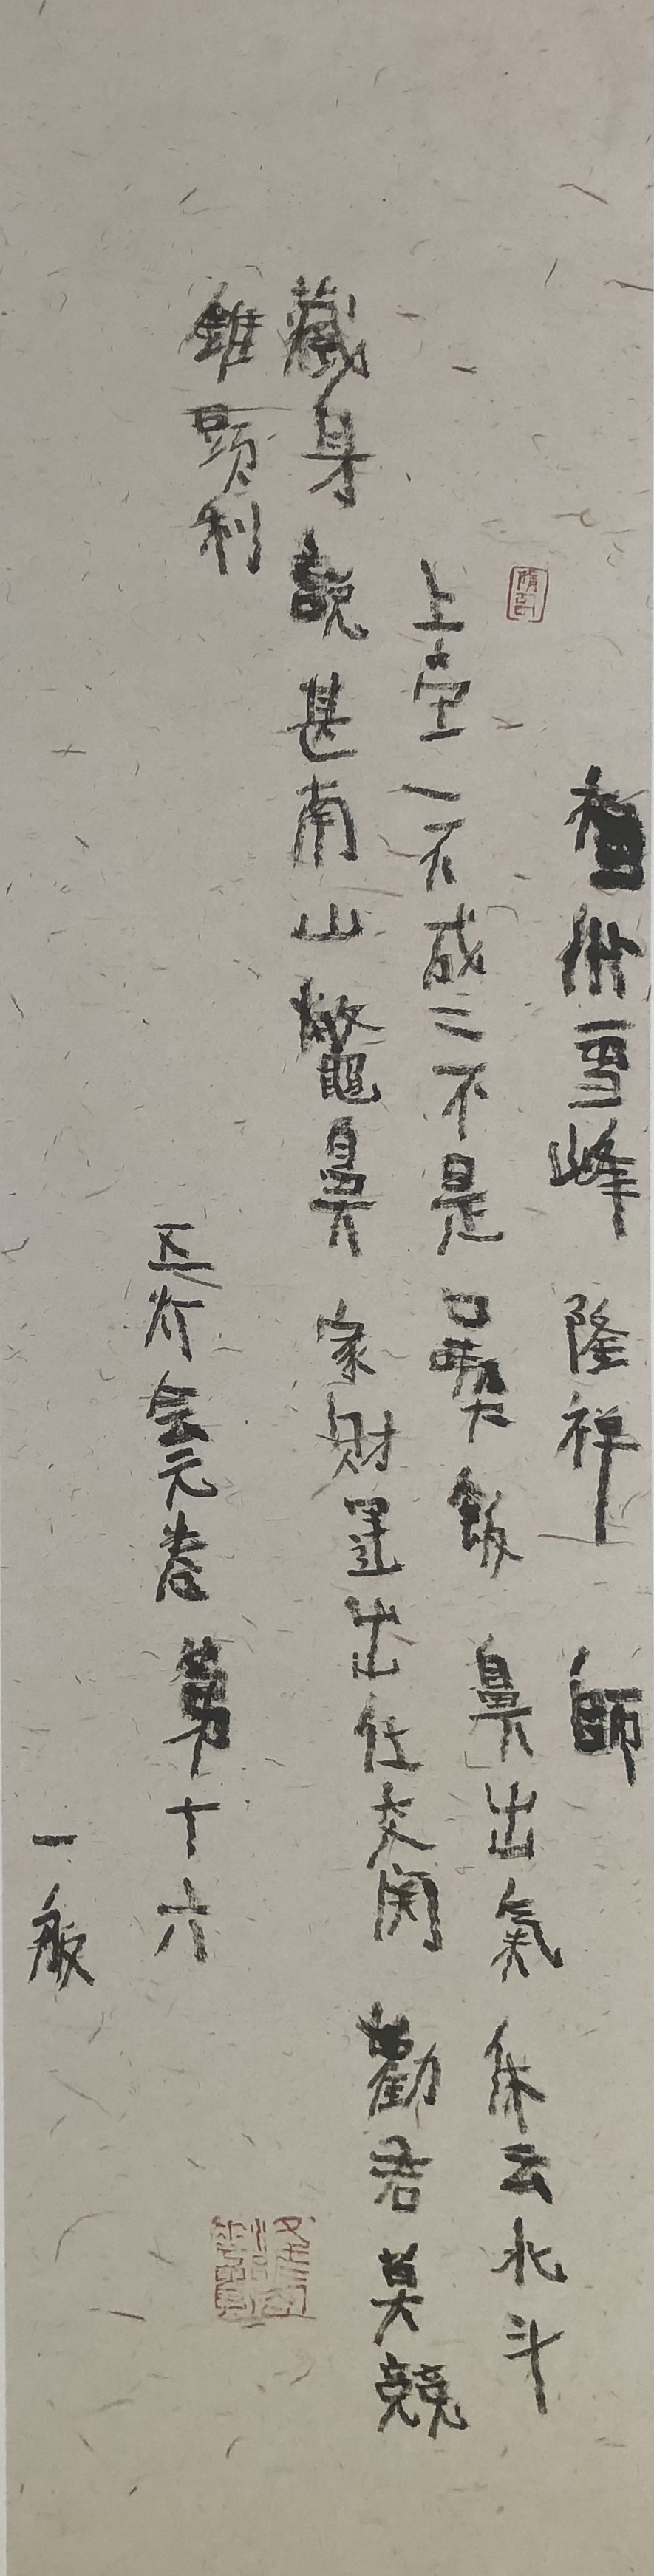 福州雪峰隆禅師
上堂一不成二不是口喫飯鼻出氣休云北斗
藏身說甚南山鼈鼻家財運出任交関勸君莫競
錐頭利
五灯会元卷第十六
一般